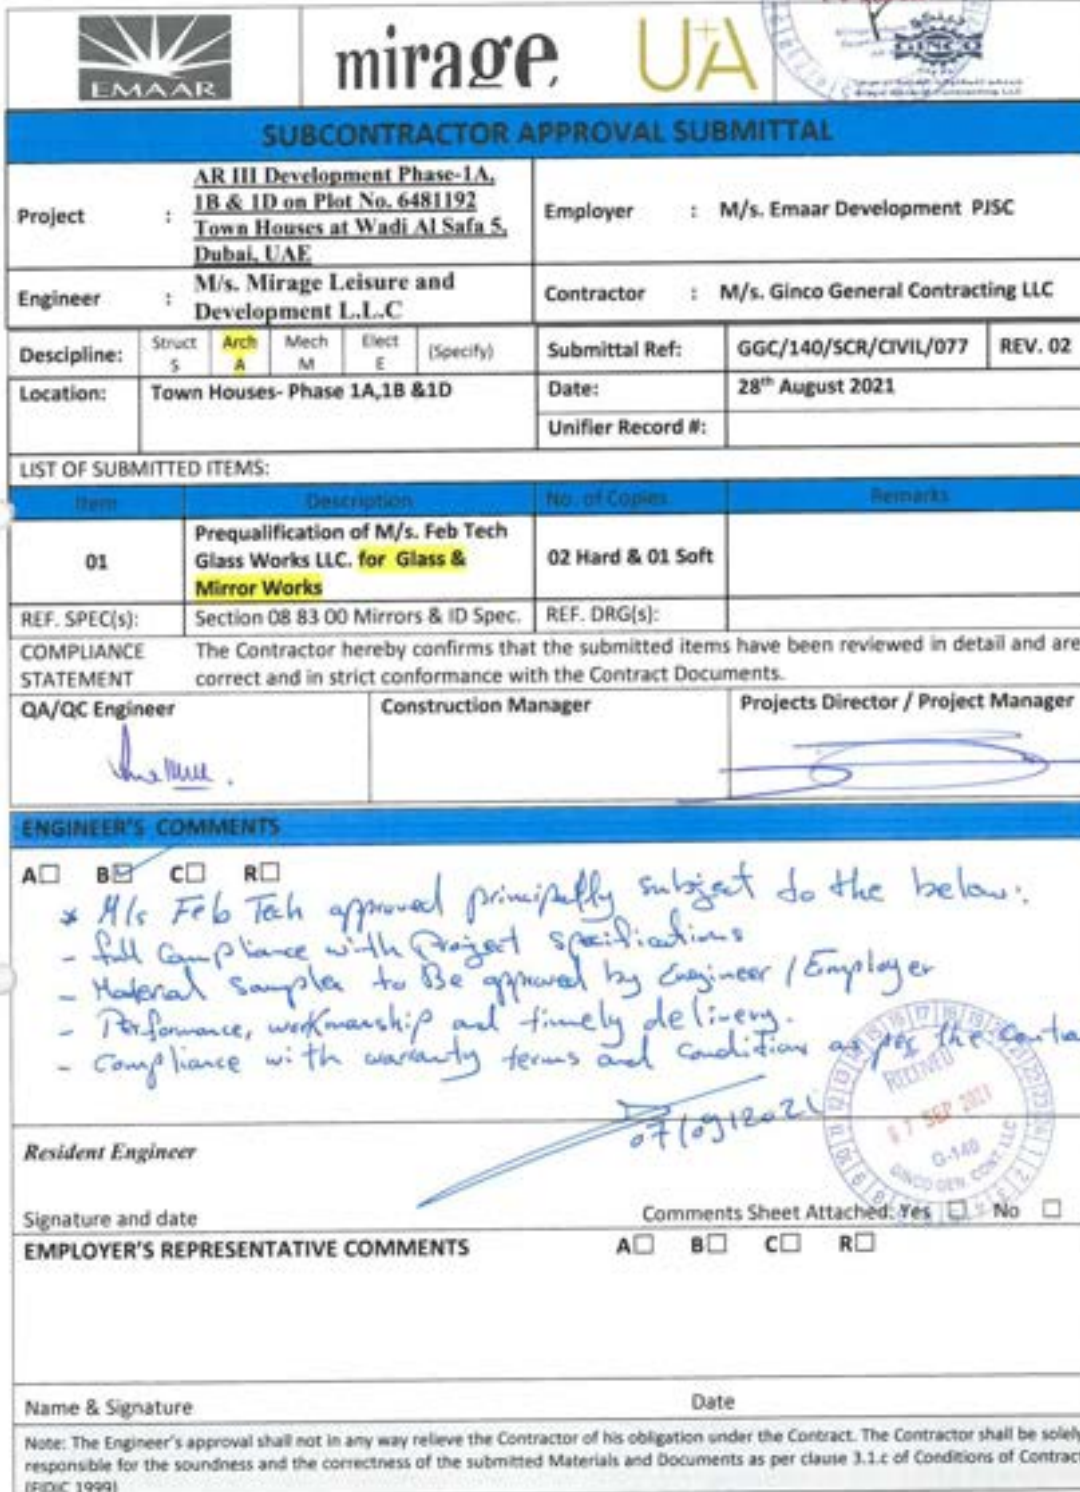 EMAAR
mirage
U+A
GINCO
SUBCONTRACTOR APPROVAL SUBMITTAL
Project : AR III Development Phase-1A,
1B & 1D on Plot No. 6481192
Town Houses at Wadi Al Safa 5,
Dubai, UAE
Employer : M/s. Emaar Development PJSC
Engineer : M/s. Mirage Leisure and
Development L.L.C
Contractor : M/s. Ginco General Contracting LLC
Descipline: Struct S Arch A Mech M Elect E (Specify)
Submittal Ref: GGC/140/SCR/CIVIL/077 REV. 02
Location: Town Houses- Phase 1A,1B &1D
Date: 28th August 2021
Unifier Record #:
LIST OF SUBMITTED ITEMS:
Item Description No. of Copies Remarks
01 Prequalification of M/s. Feb Tech
Glass Works LLC. for Glass &
Mirror Works
02 Hard & 01 Soft
REF. SPEC(s): Section 08 83 00 Mirrors & ID Spec. REF. DRG(s):
COMPLIANCE STATEMENT
The Contractor hereby confirms that the submitted items have been reviewed in detail and are
correct and in strict conformance with the Contract Documents.
QA/QC Engineer Construction Manager Projects Director / Project Manager
ENGINEER'S COMMENTS
A B C R
* M/s Feb Tech approved principally subject to the below:
- full compliance with Project specifications
- Material samples to Be approved by Engineer / Employer
- Performance, workmanship and timely delivery.
- Compliance with warranty terms and condition as per the Contra
07/09/2021
RECEIVED
07 SEP 2021
G-140
GINCO GEN. CONT. LLC
Resident Engineer
Signature and date
Comments Sheet Attached: Yes No
EMPLOYER'S REPRESENTATIVE COMMENTS A B C R
Name & Signature Date
Note: The Engineer's approval shall not in any way relieve the Contractor of his obligation under the Contract. The Contractor shall be solely
responsible for the soundness and the correctness of the submitted Materials and Documents as per clause 3.1.c of Conditions of Contract
(FIDIC 1999)